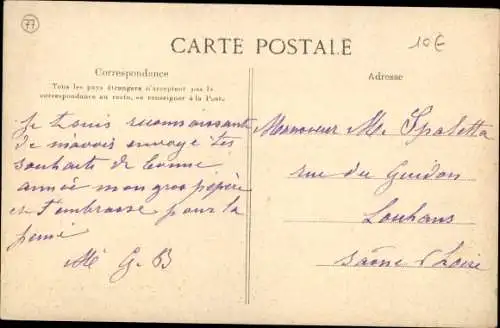 CARTE POSTALE
10€
Correspondance
Tous les pays étrangers n'acceptent pas la
correspondance au recto, se renseigner à la Poste.
Adresse
Je t suis reconnaissante
de m'avoir envoyé tes
souhaits de bonne
année mon gros pépère
et t'embrasse pour la
peine
M G. B
Monsieur M. Spaletta
rue du Guidon
Louhans
Saône & Loire